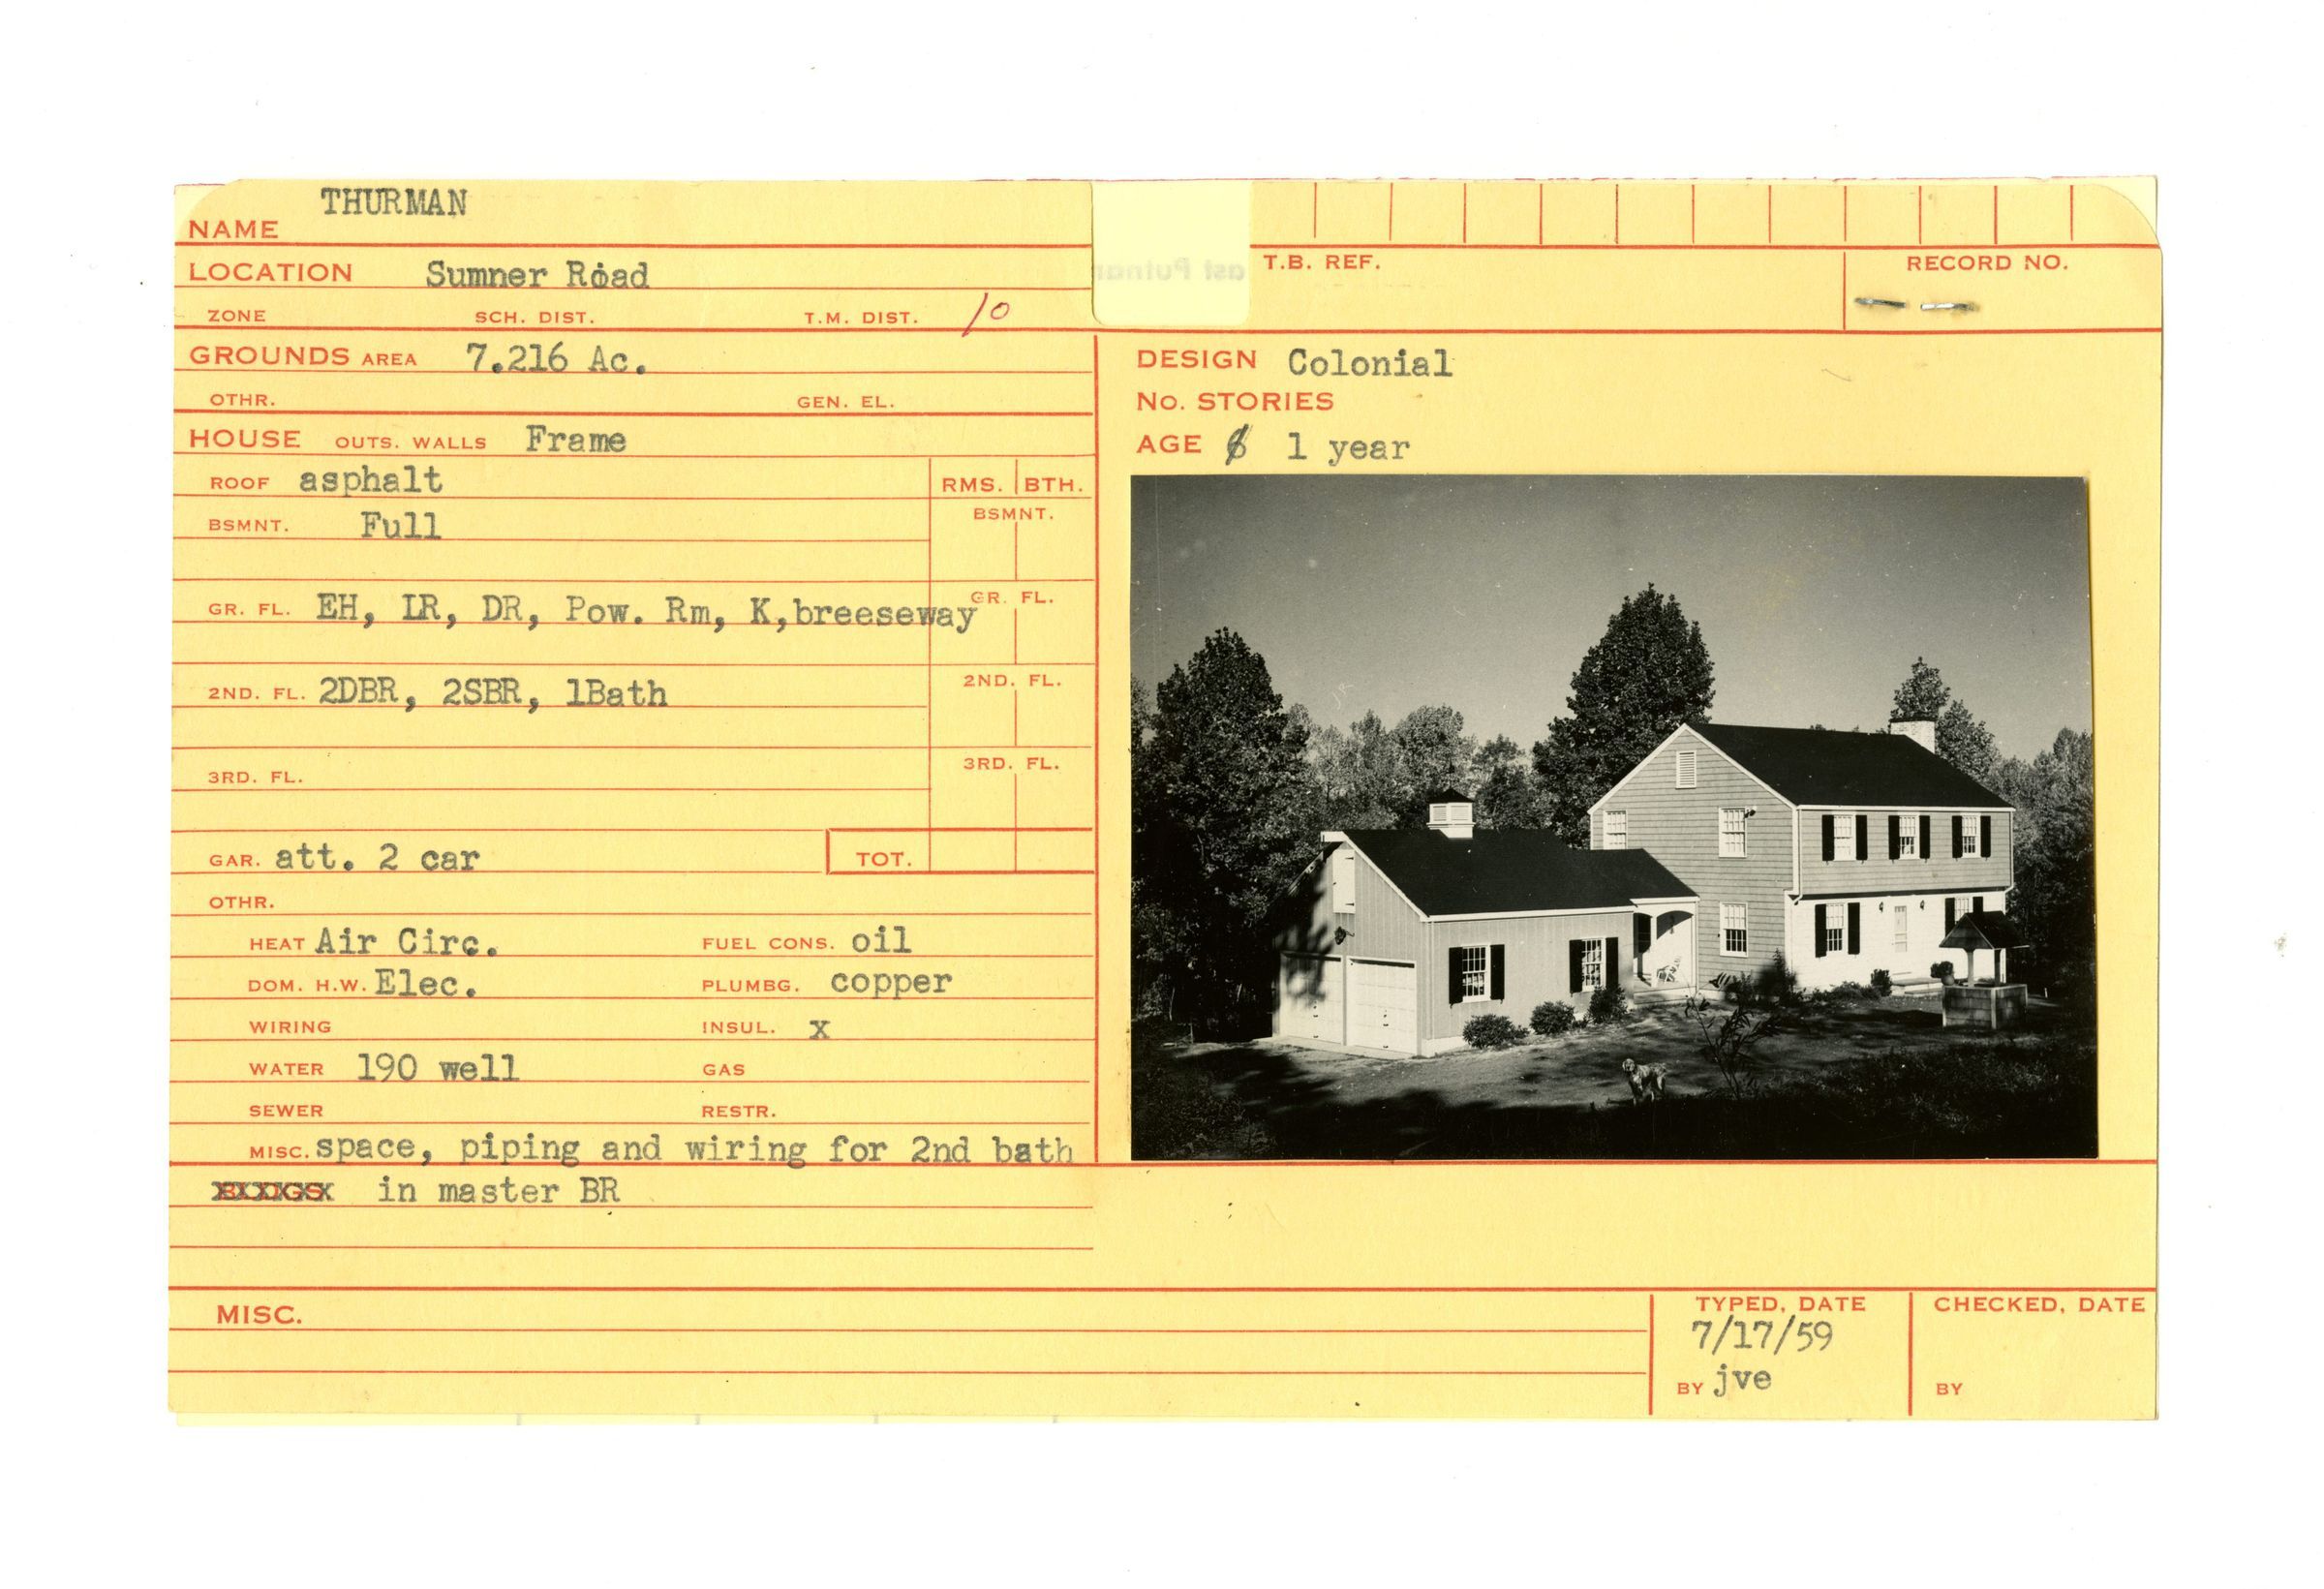 THURMAN
NAME
LOCATION Sumner Road
ZONE SCH. DIST. T.M. DIST. 10
GROUNDS AREA 7.216 Ac.
OTHR. GEN. EL.
HOUSE OUTS. WALLS Frame
ROOF asphalt RMS. BTH.
BSMNT. Full BSMNT.
GR. FL. EH, LR, DR, Pow. Rm, K,breeseway GR. FL.
2ND. FL. 2DBR, 2SBR, 1Bath 2ND. FL.
3RD. FL. 3RD. FL.
GAR. att. 2 car TOT.
OTHR.
HEAT Air Circ. FUEL CONS. oil
DOM. H.W. Elec. PLUMBG. copper
WIRING INSUL. x
WATER 190 well GAS
SEWER RESTR.
MISC. space, piping and wiring for 2nd bath
BLDGS in master BR
MISC.
T.B. REF. RECORD NO.
DESIGN Colonial
No. STORIES
AGE 1 year
TYPED, DATE CHECKED, DATE
7/17/59
BY jve BY